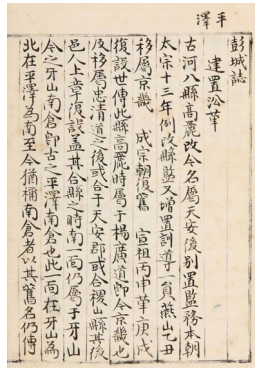 平澤
彭城誌
建置沿革
古河八縣高麗改今名屬天安後別置監務本朝
太宗十三年例改縣監又增置訓導一員燕山乙丑
移屬京畿 成宗朝復舊 宣祖丙申革庚戌
復設世傳此縣高麗時屬于楊廣道卽今京畿也
及移屬忠淸道之後或合于天安郡或合稷山縣其後
邑人上章復設盖其合縣之時南一面仍屬于牙山
今之牙山南倉卽古之平澤南倉也此一面在牙山爲
北在平澤爲南至今猶稱南倉者以其舊名仍傳